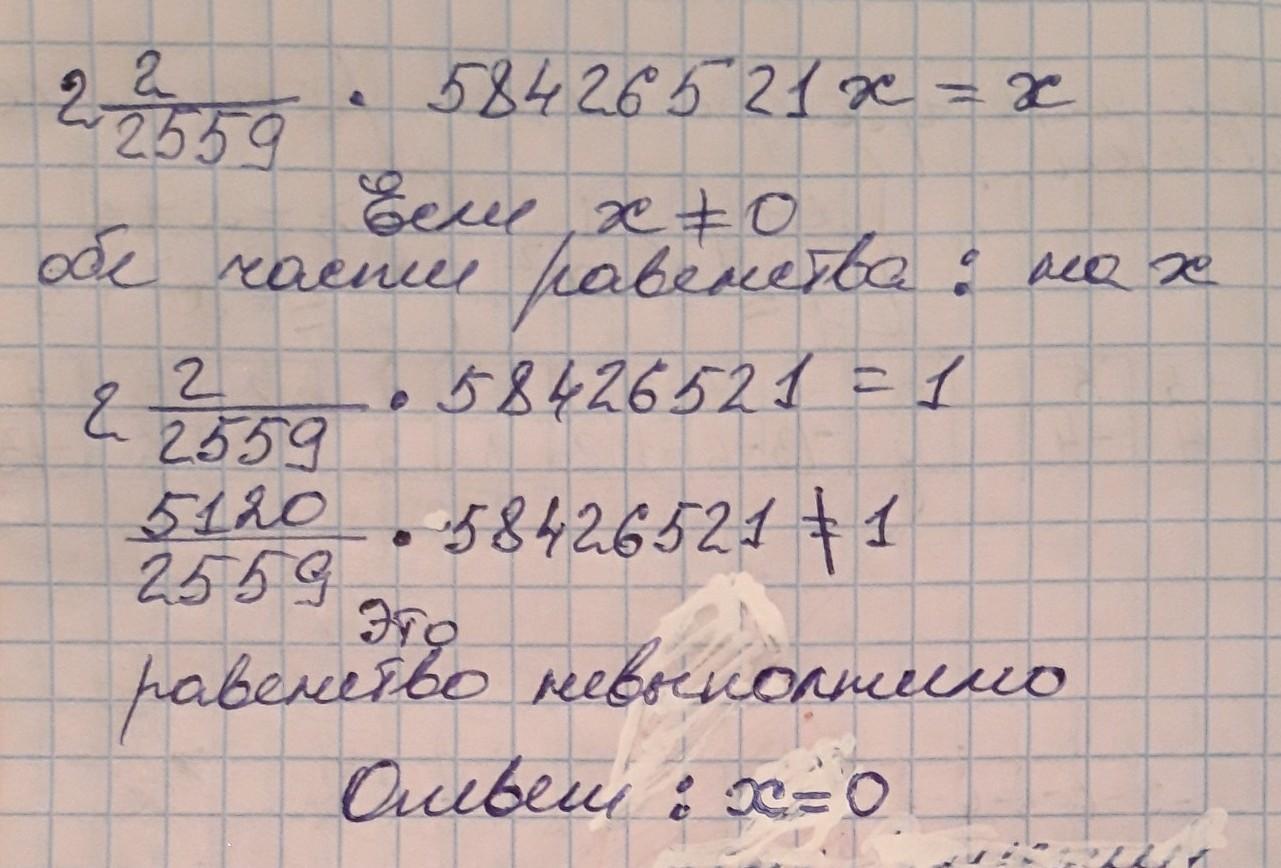 2 2/2559 · 58426521x = x
Если x ≠ 0
обе части равенства : на x
2 2/2559 · 58426521 = 1
5120/2559 · 58426521 ≠ 1
Это
равенство невыполнимо
Ответ : x = 0